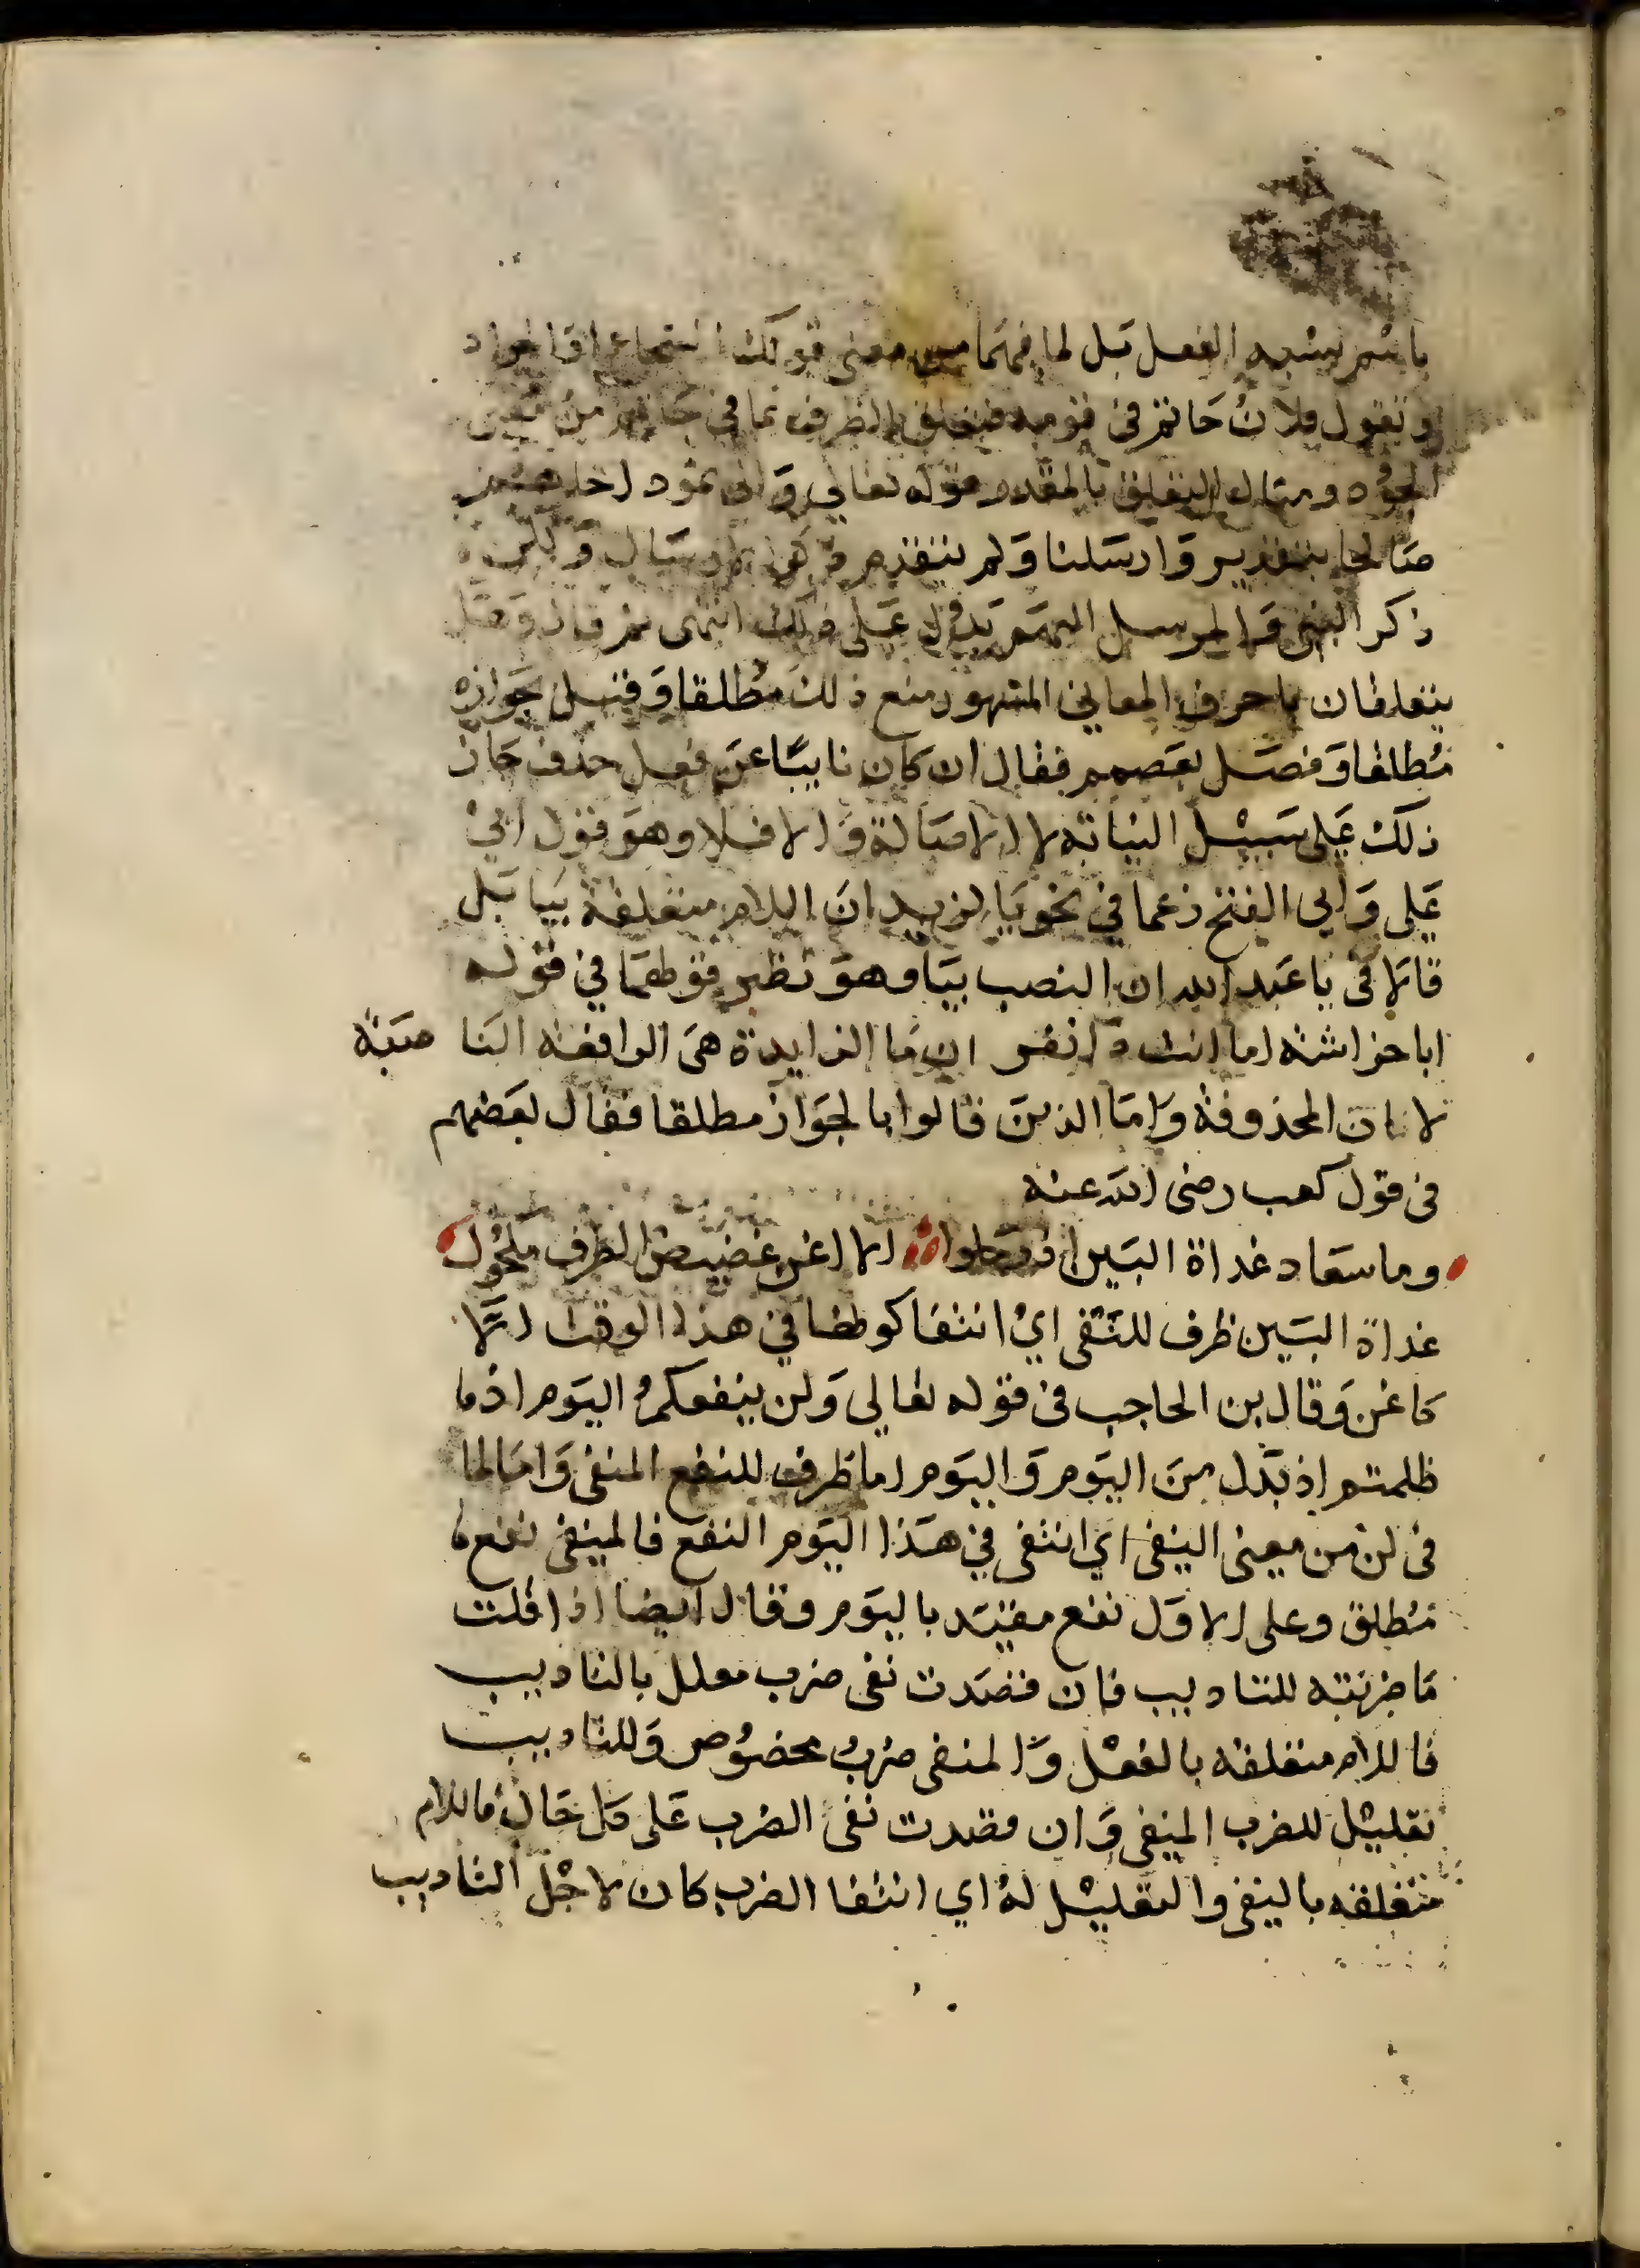 باسم يشبه الفعل بل لما فيهما من معنى قولك الشجاع او الجواد
وتقول فلان حاتم في قومه فتعلق الظرف بما في حاتم من معنى
الجود ومثال التعلق بالمقدر قوله تعالى والى ثمود اخاهم
صالحا بتقدير وارسلنا ولم يتقدم ذكر الارسال ولكن
ذكر النبي والمرسل اليهم يدل على ذلك انتهى ثم قال وهل
يتعلقان باحرف المعاني المشهور منع ذلك مطلقا وقيل جوازه
مطلقا وفصل بعضهم فقال ان كان نايبا عن فعل حذف جاز
ذلك على سبيل النيابة لا الاصالة والا فلا وهو قول ابي
علي وابي الفتح زعما في نحو يا لزيد ان اللام متعلقة بيا بل
قالا في يا عبد الله ان النصب بيا وهو نظير قولهما في قوله
ابا خراشة اما انت ذا نفر ان ما الزايدة هي الرافعة الناصبة
لا كان المحذوفة واما الذين قالوا بالجواز مطلقا فقال بعضهم
في قول كعب رضى الله عنه
وما سعاد غداة البين اذ رحلوا الا اغن غضيض الطرف مكحول
غداة البين ظرف للنفى اي انتفا كونها في هذا الوقت الا
كاغن وقال بن الحاجب في قوله تعالى ولن ينفعكم اليوم اذ
ظلمتم اذ بدل من اليوم واليوم اما ظرف للنفع المنفى واما لما
في لن من معنى النفى اي انتفى في هذا اليوم النفع فالمنفى نفع
مطلق وعلى الاول نفع مقيد باليوم وقال ايضا اذا قلت
ما ضربته للتاديب فان قصدت نفى ضرب معلل بالتاديب
فاللام متعلقة بالفعل والمنفى ضرب مخصوص وللتاديب
تعليل للضرب المنفى وان قصدت نفى الضرب على كل حال فاللام
متعلقة بالنفى والتعليل له اي انتفا الضرب كان لاجل التاديب